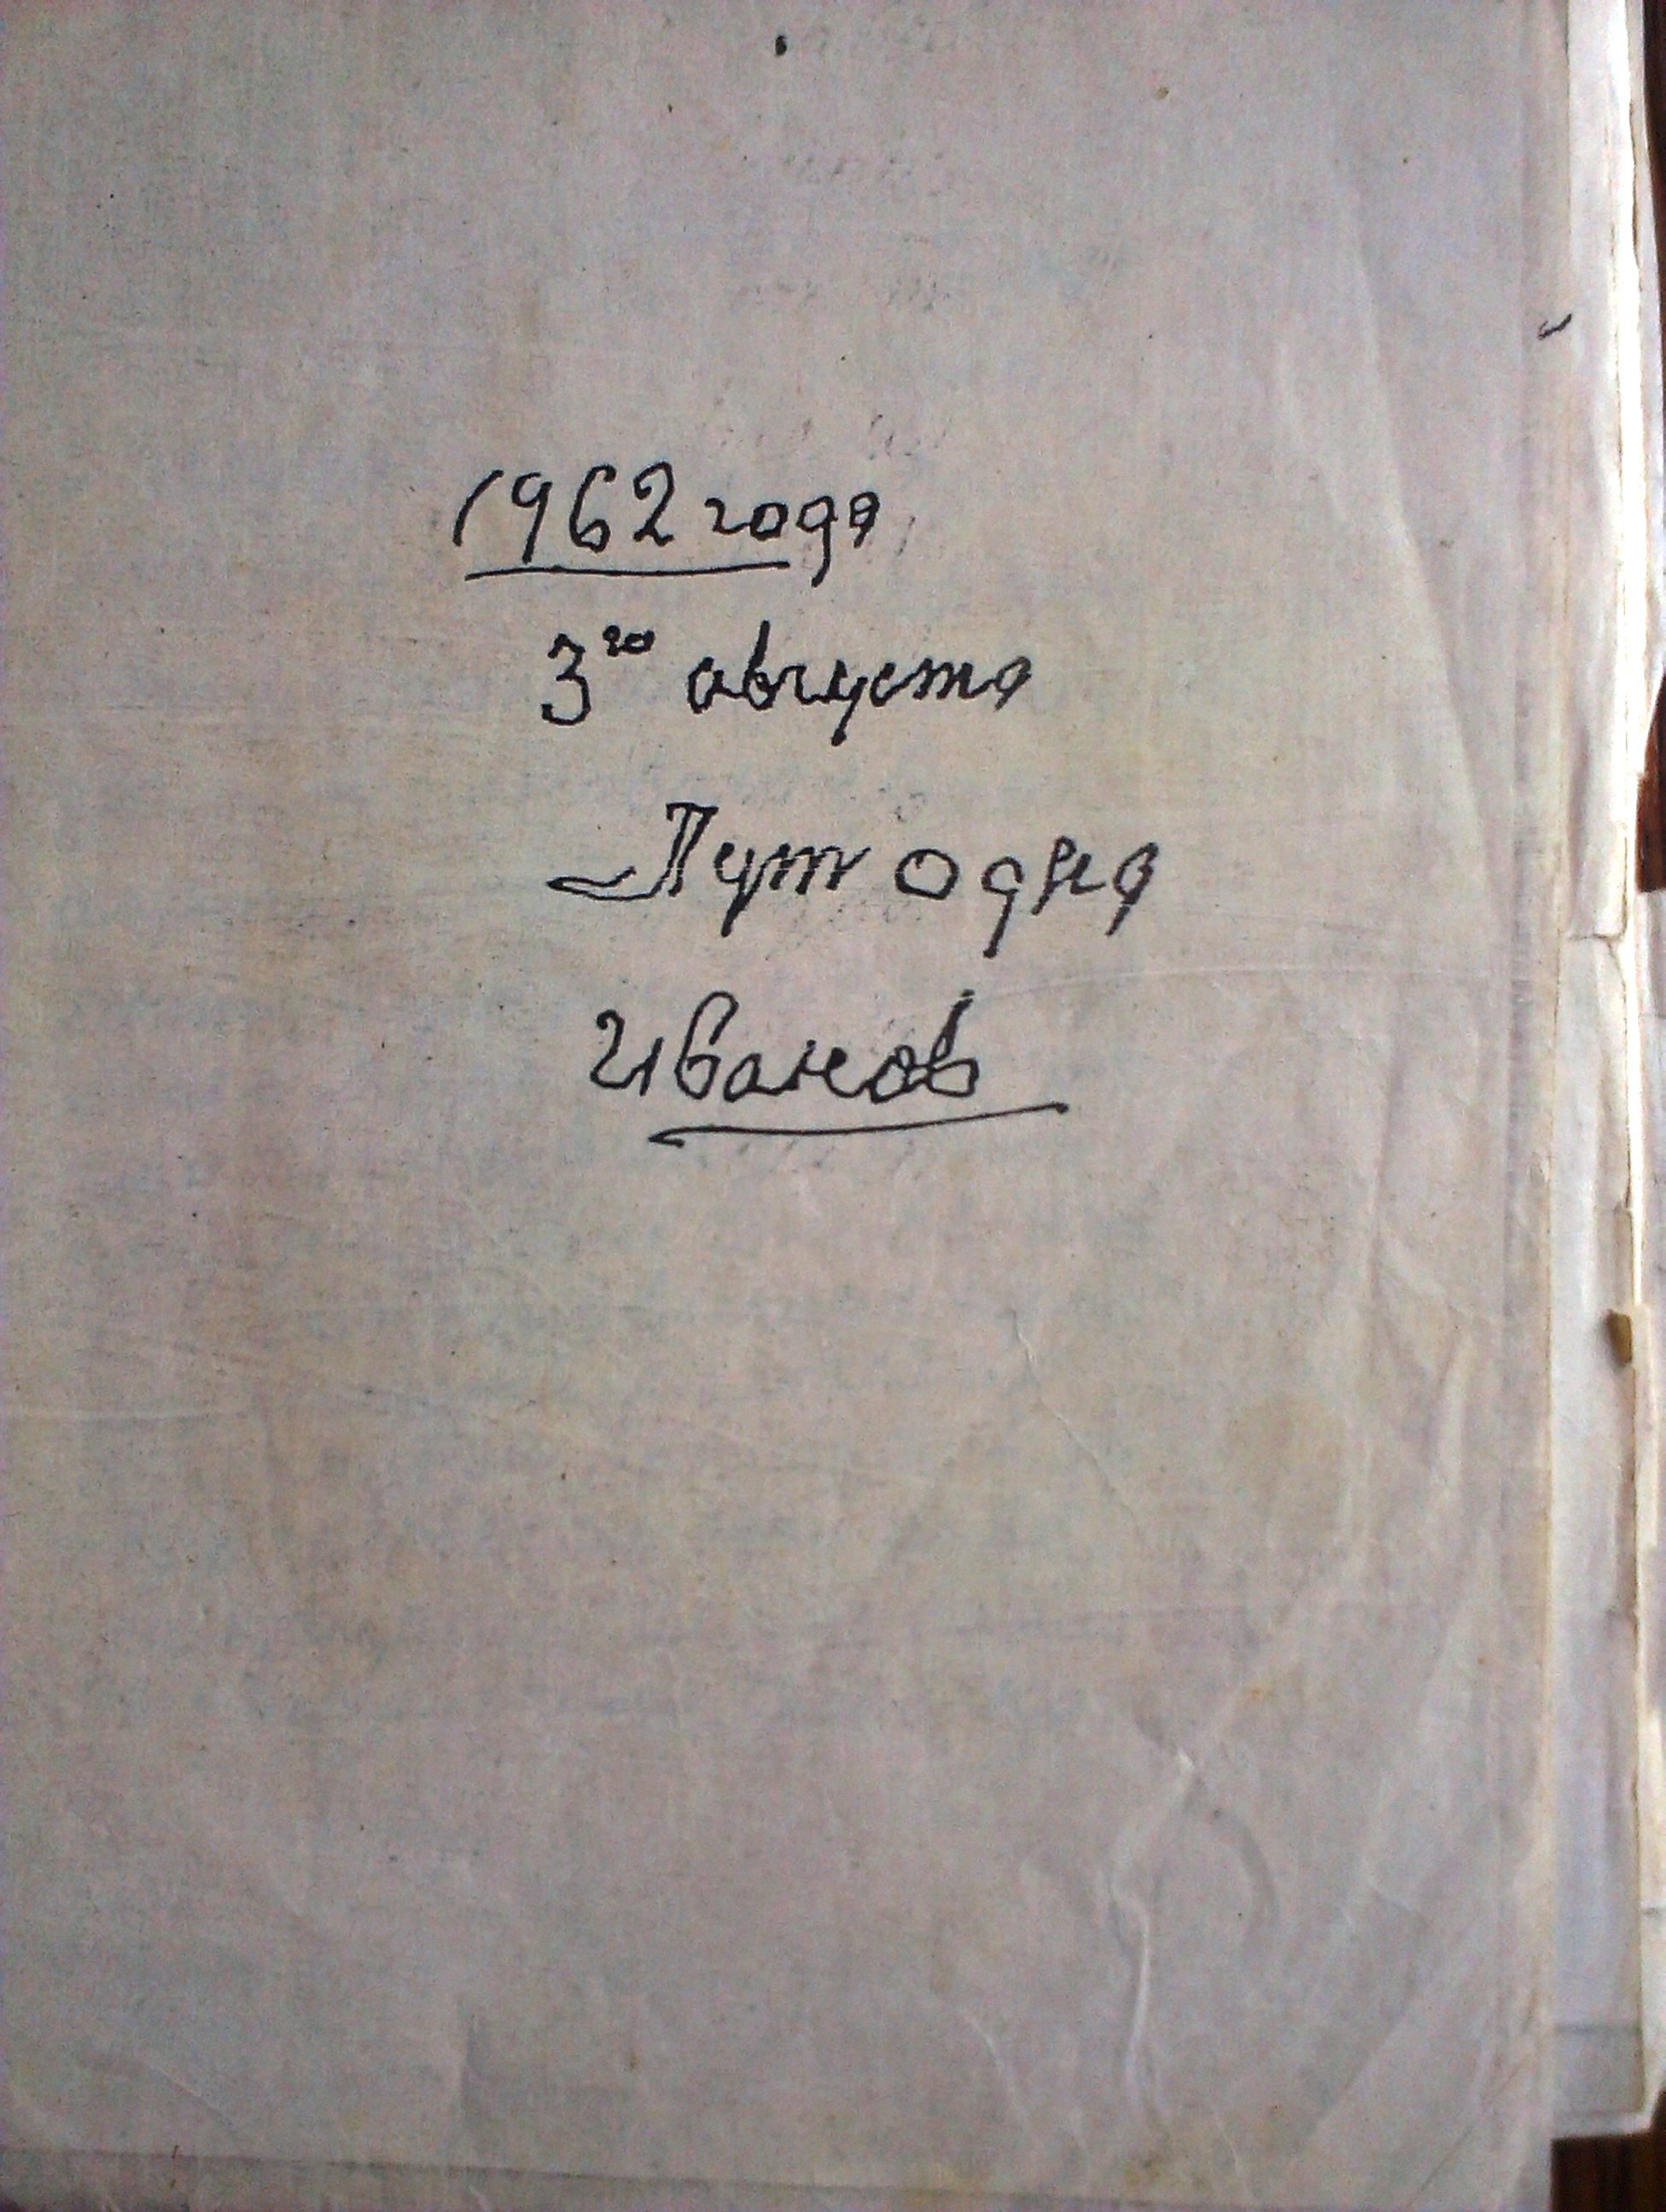 1962 года
3го августа
Пут одна
Иванов